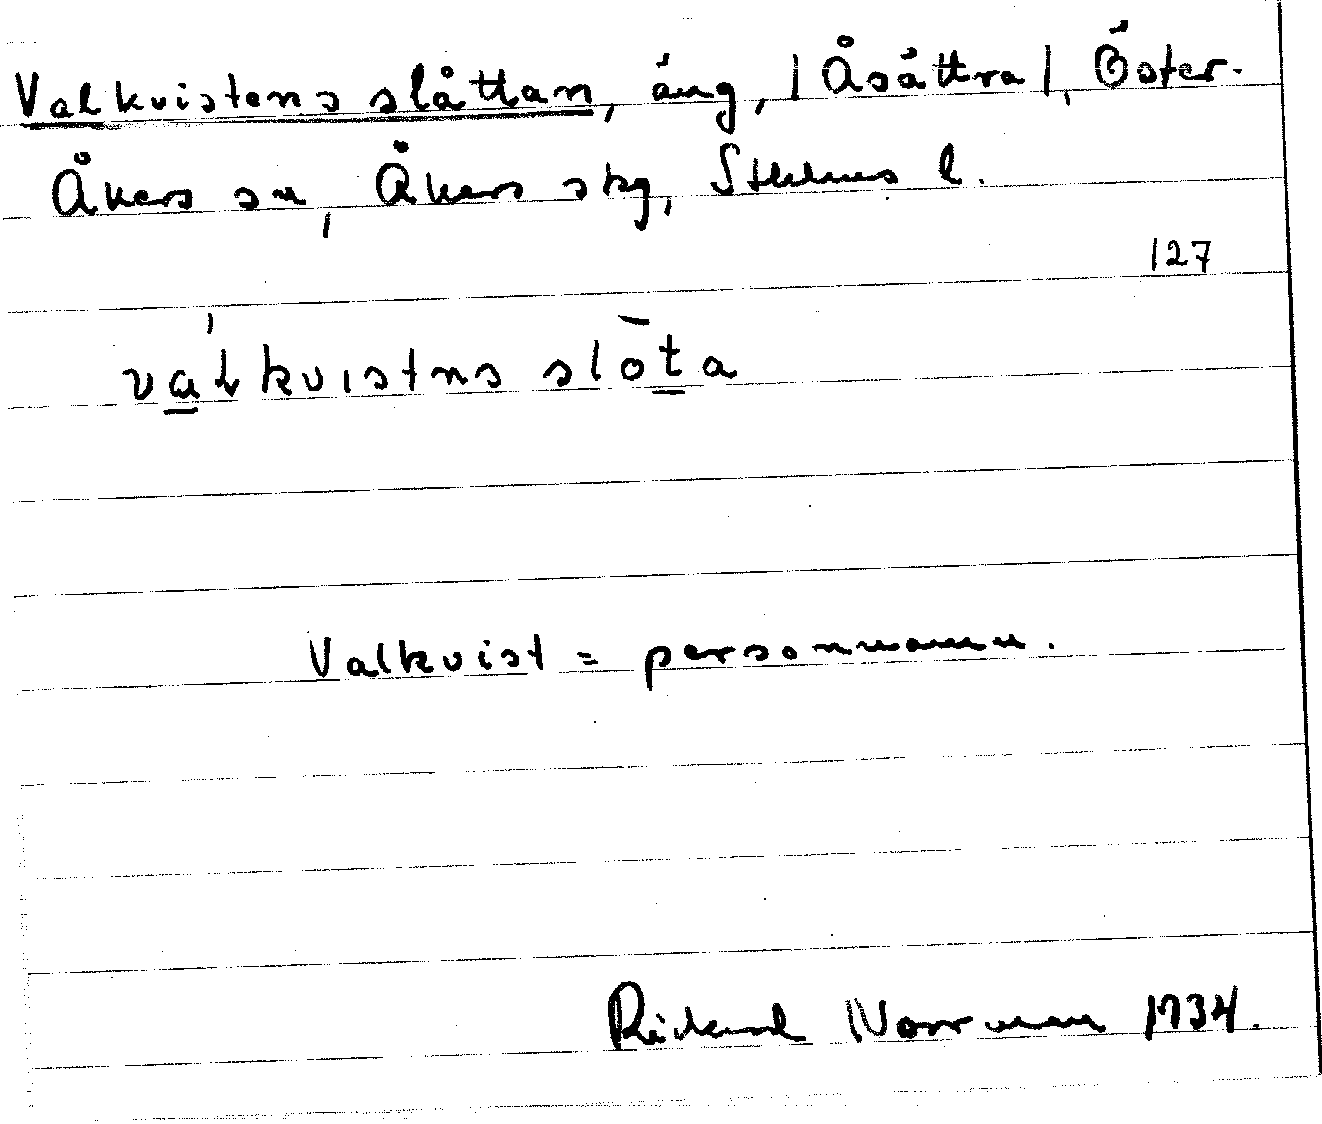 Valkvistens slåttan, äng, |Åsättra|, Öster-
Åkers sn, Åkers skg, Sthlms l.
127
val kvistns slōta
Valkvist = personnamn.
Rickard Norrman 1934.